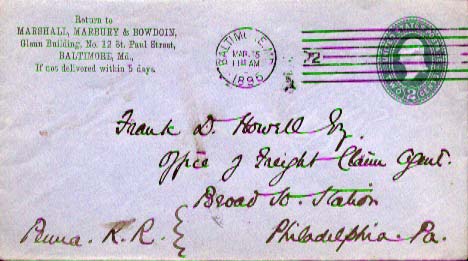 Return to
MARSHALL, MARBURY & BOWDOIN,
Glenn Building, No. 12 St. Paul Street,
BALTIMORE, Md.,
If not delivered within 5 days.
BALTIMORE, MD.
MAR. 15
11 AM
1895
72
UNITED STATES POSTAGE
TWO CENTS
2
Frank D. Howell Esq.
Office of Freight Claim Agent.
Broad St. Station
Penna. R. R. Philadelphia. Pa.